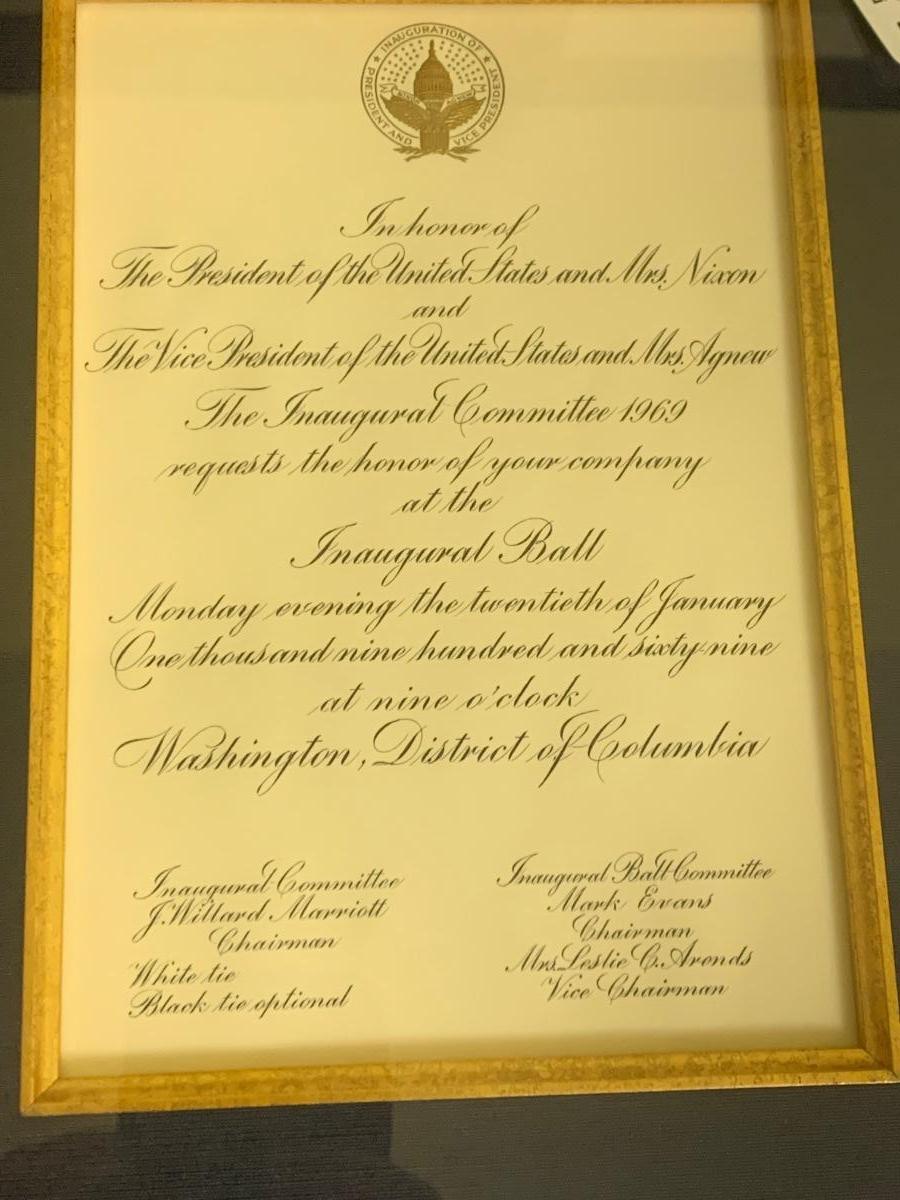 INAUGURATION OF
PRESIDENT AND VICE PRESIDENT
In honor of
The President of the United States and Mrs. Nixon
and
The Vice President of the United States and Mrs. Agnew
The Inaugural Committee 1969
requests the honor of your company
at the
Inaugural Ball
Monday evening the twentieth of January
One thousand nine hundred and sixty nine
at nine o'clock
Washington, District of Columbia
Inaugural Committee
J. Willard Marriott
Chairman
White tie
Black tie optional
Inaugural Ball Committee
Mark Evans
Chairman
Mrs. Leslie C. Arends
Vice Chairman